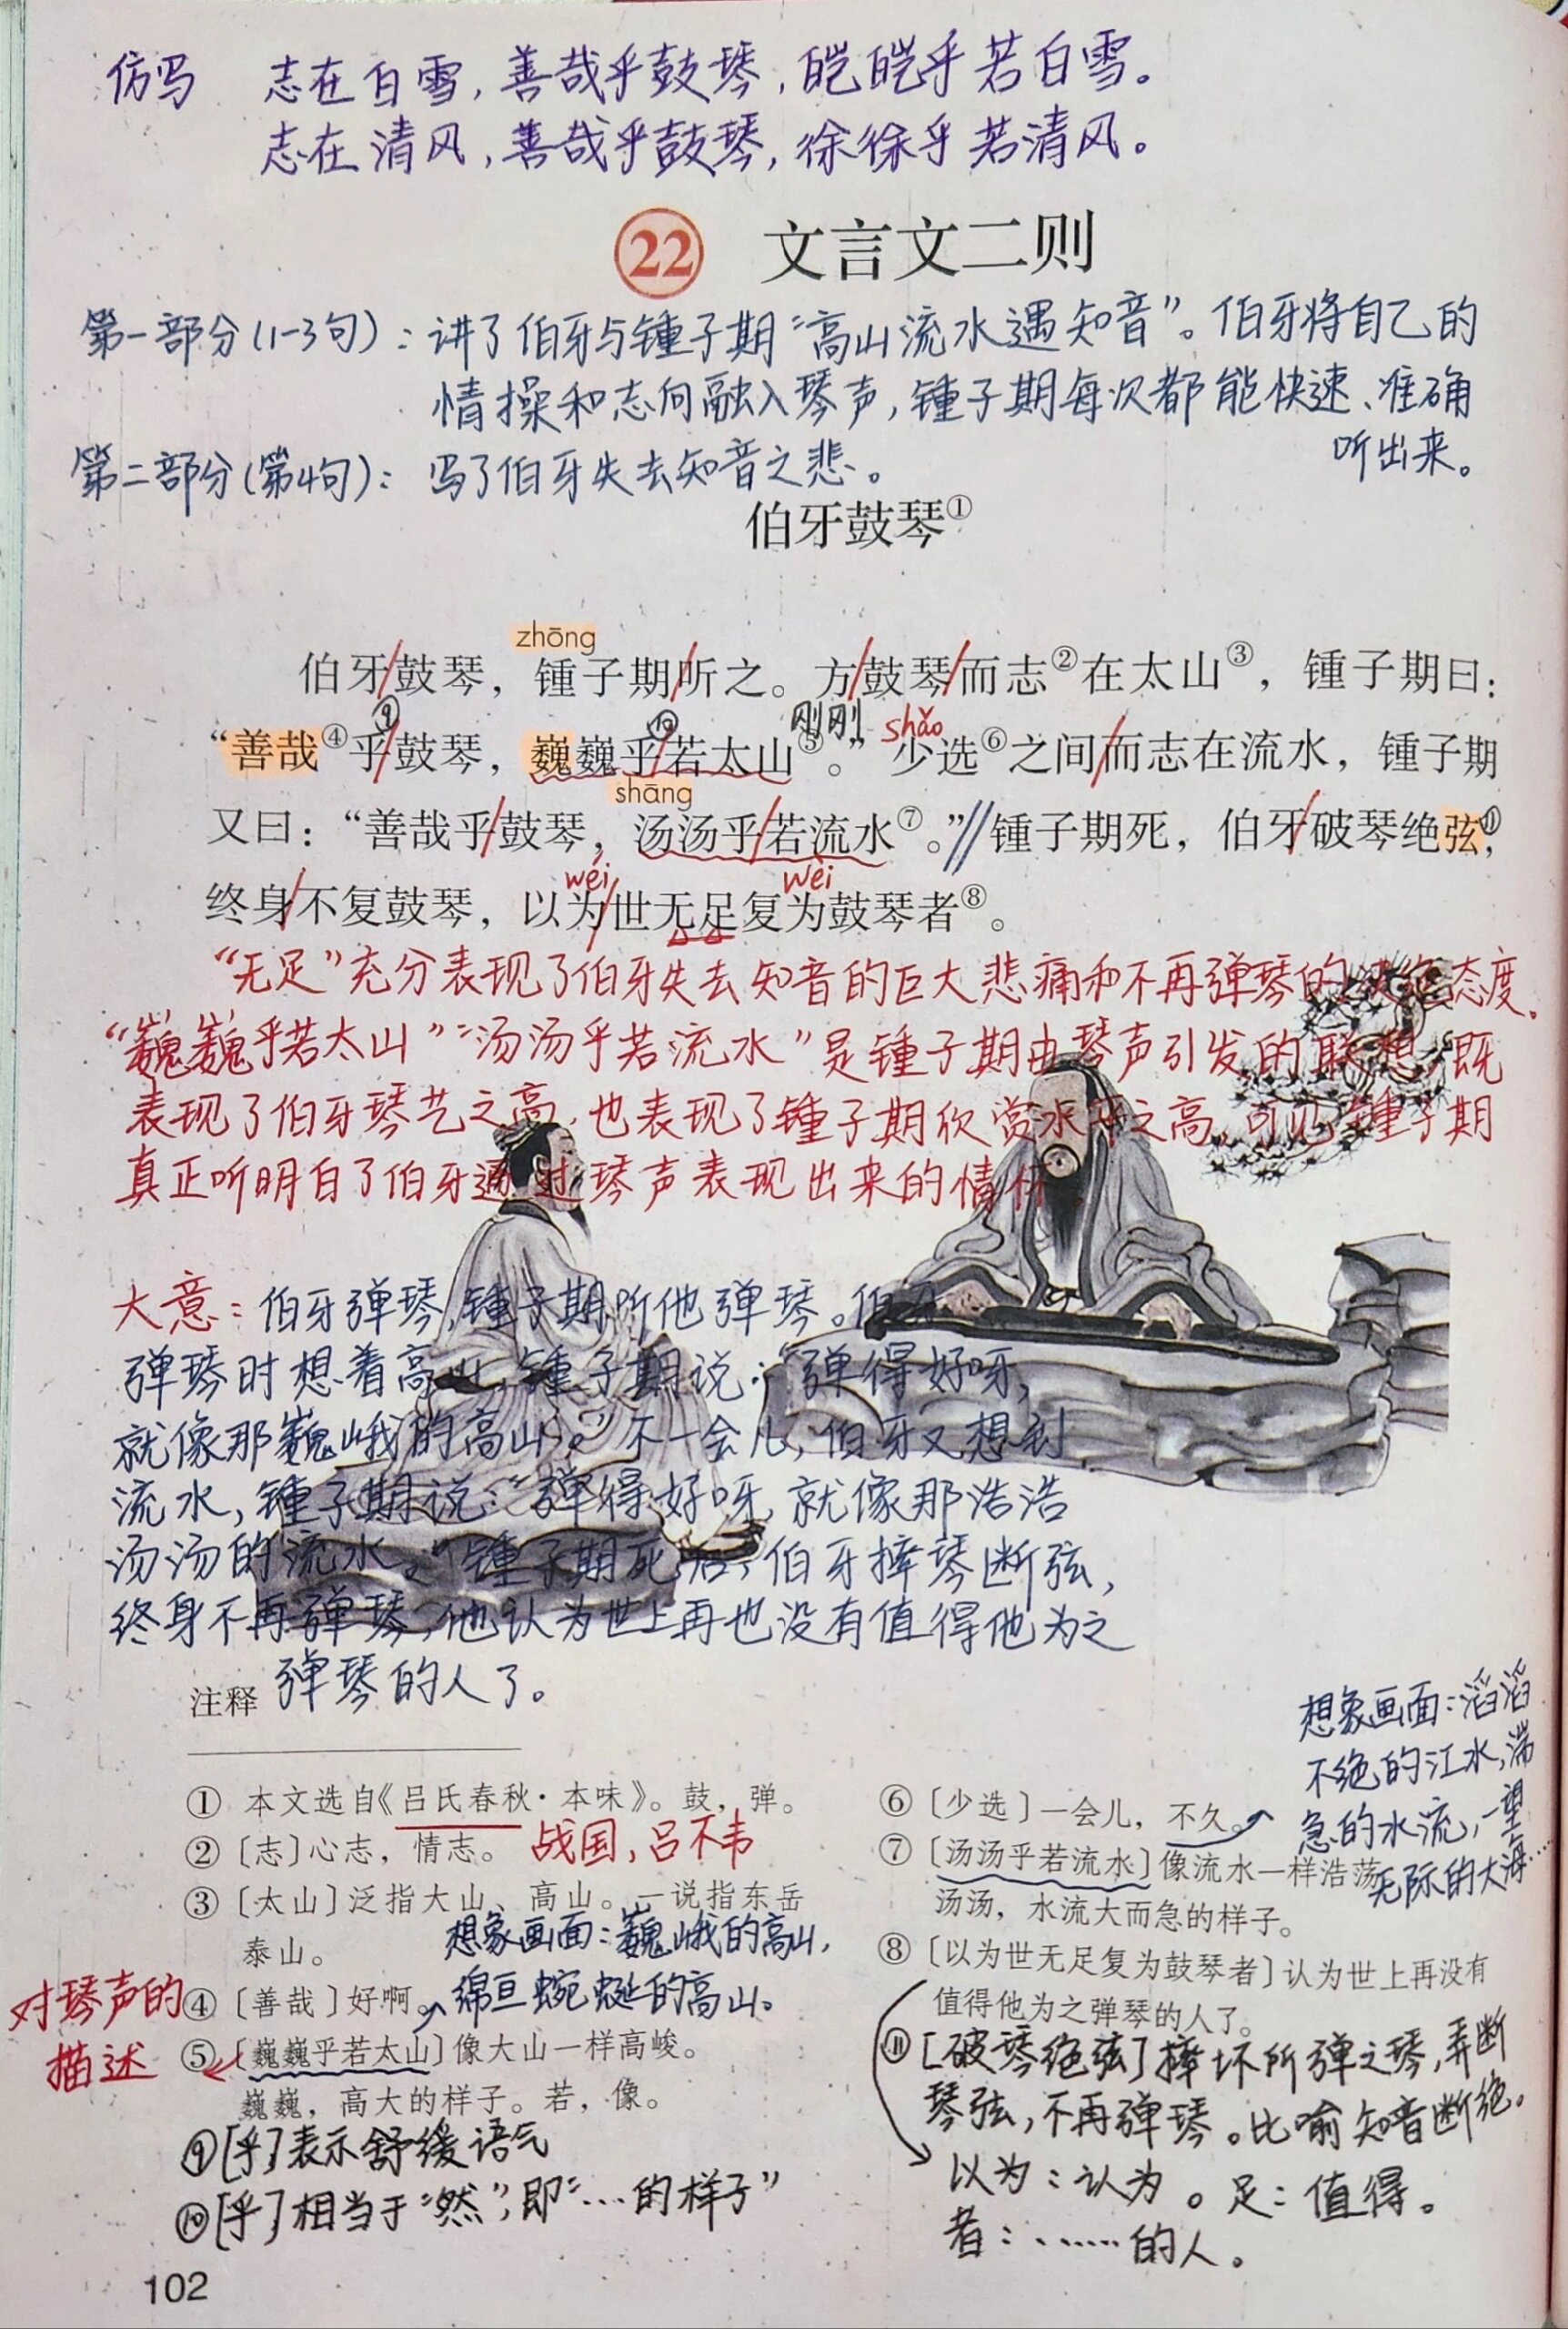 仿写 志在白雪，善哉乎鼓琴，皑皑乎若白雪。
志在清风，善哉乎鼓琴，徐徐乎若清风。
22 文言文二则
第一部分(1-3句)：讲了伯牙与锺子期“高山流水遇知音”。伯牙将自己的
情操和志向融入琴声，锺子期每次都能快速、准确
听出来。
第二部分(第4句)：写了伯牙失去知音之悲。
伯牙鼓琴①
zhōng
伯牙/鼓琴，锺子期/听之。方/鼓琴/而志②在太山③，锺子期曰：
⑨ ⑩ 刚刚 shǎo
“善哉④乎/鼓琴，巍巍乎/若太山⑤。”少选⑥之间/而志在流水，锺子期
shāng
又曰：“善哉乎/鼓琴，汤汤乎/若流水⑦。”//锺子期死，伯牙/破琴绝弦⑪，
wéi wèi
终身/不复鼓琴，以为/世无足复为鼓琴者⑧。
“无足”充分表现了伯牙失去知音的巨大悲痛和不再弹琴的决绝态度。
“巍巍乎若太山”“汤汤乎若流水”是锺子期由琴声引发的联想，既
表现了伯牙琴艺之高，也表现了锺子期欣赏水平之高，可见锺子期
真正听明白了伯牙通过琴声表现出来的情怀
大意：伯牙弹琴，锺子期听他弹琴。伯牙
弹琴时想着高山，锺子期说：“弹得好呀，
就像那巍峨的高山。”不一会儿，伯牙又想到
流水，锺子期说：“弹得好呀，就像那浩浩
汤汤的流水。”锺子期死后，伯牙摔琴断弦，
终身不再弹琴，他认为世上再也没有值得他为之
弹琴的人了。
注释
① 本文选自《吕氏春秋·本味》。鼓，弹。
② 〔志〕心志，情志。 战国，吕不韦
③ 〔太山〕泛指大山、高山。一说指东岳
泰山。
想象画面：巍峨的高山，
绵亘蜿蜒的高山。
④ 〔善哉〕好啊。
对琴声的
描述
⑤ 〔巍巍乎若太山〕像大山一样高峻。
巍巍，高大的样子。若，像。
⑨[乎]表示舒缓语气
⑩[乎]相当于“然”，即“……的样子”
102
想象画面：滔滔
不绝的江水，湍
急的水流，一望
无际的大海……
⑥ 〔少选〕一会儿，不久。
⑦ 〔汤汤乎若流水〕像流水一样浩荡
汤汤，水流大而急的样子。
⑧ 〔以为世无足复为鼓琴者〕认为世上再没有
值得他为之弹琴的人了。
⑪[破琴绝弦]摔坏所弹之琴，弄断
琴弦，不再弹琴。比喻知音断绝。
以为：认为。足：值得。
者：……的人。